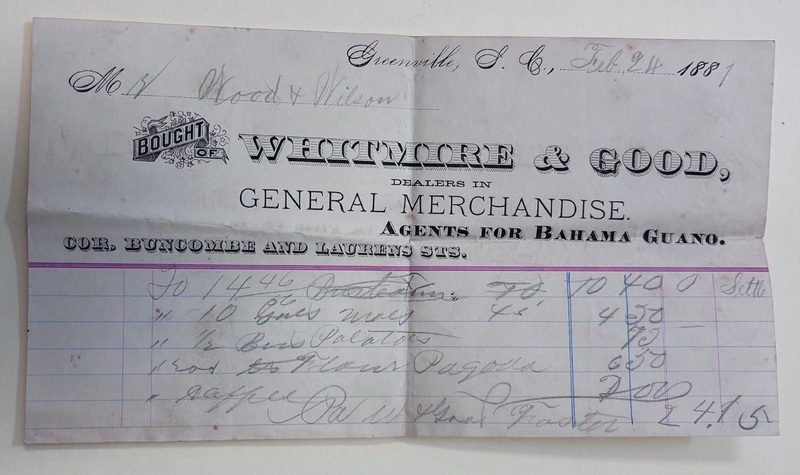 Greenville, S. C., Feb. 24 1881
Mr Wood & Wilson
BOUGHT OF
WHITMIRE & GOOD,
DEALERS IN
GENERAL MERCHANDISE.
AGENTS FOR BAHAMA GUANO.
COR, BUNCOMBE AND LAURENS STS.
To 14 46 10 40 Settle
" 10 Gals Molas 45 4 50
" 1/2 Bus Potatoes 75
" Flour Pagoda 6 50
" 2 00
24.15